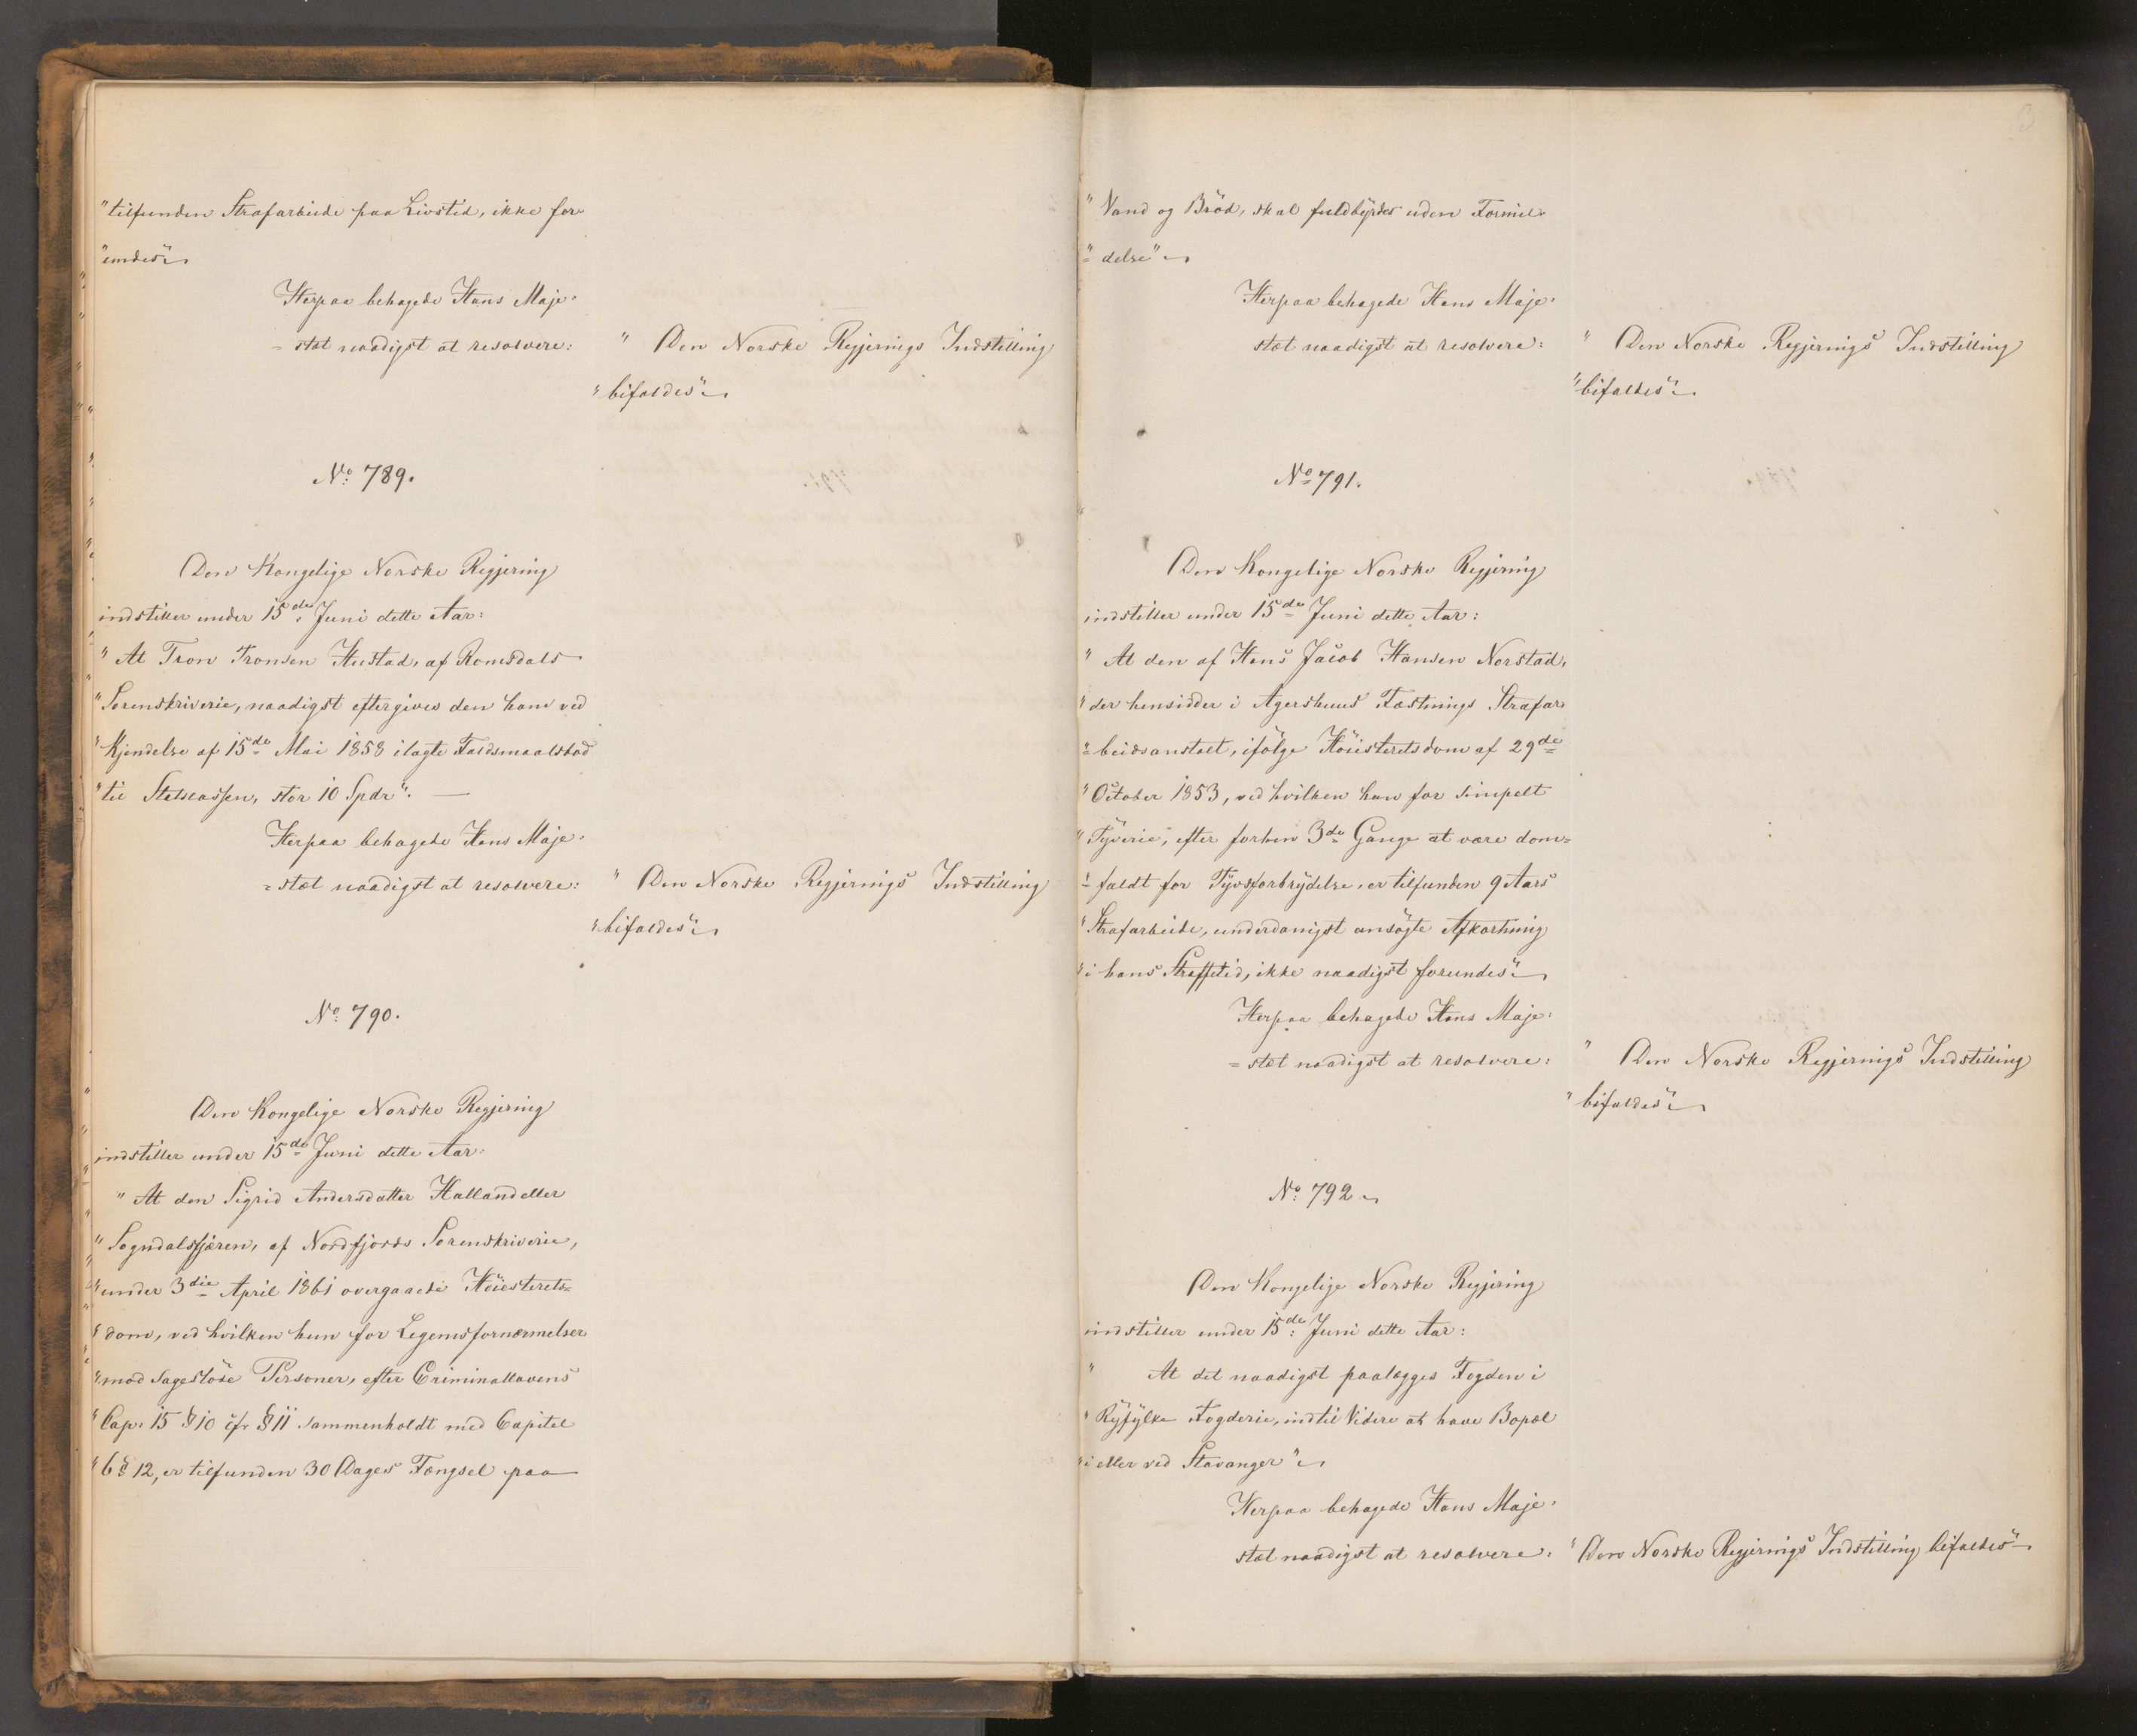 "tilfunden Strafarbeide paa Livstid, ikke for-
"undes"
Herpaa behagede Hans Maje-
=stæt naadigst at resolvere:
" Den Norske Regjerings Indstilling
"bifaldes"
No. 789.
Den Kongelige Norske Regjering
indstiller under 15de Juni dette Aar:
" At Tron Tronsen Hustad, af Romsdals
"Sorenskriverie, naadigst eftergives den ham ved
"Kjendelse af 15de Mai 1858 ilagte Faldsmaalsbod
"til Statscassen, stor 10 Spdr".
Herpaa behagede Hans Maje-
=stæt naadigst at resolvere:
" Den Norske Regjerings Indstilling
"bifaldes"
No. 790.
Den Kongelige Norske Regjering
indstiller under 15de Juni dette Aar:
" At den Sigrid Andersdatter Halland eller
"Sogndalsfjæren, af Nordfjords Sorenskriverie,
"under 3die April 1861 overgaaede Höiesterets=
"dom, ved hvilken hun for Legemsfornærmelser
"mod sageslöse Personer, efter Criminallovens
"Cap. 15 § 10 cfr § 11 sammenholdt med Capitel
"6 § 12, er tilfunden 30 Dages Fængsel paa
3
"Vand og Bröd, skal fuldbyrdes uden Formil-
"=delse"
Herpaa behagede Hans Maje-
stæt naadigst at resolvere:
" Den Norske Regjerings Indstilling
"bifaldes"
No. 791.
Den Kongelige Norske Regjering
indstiller under 15de Juni dette Aar:
" At den af Hans Jacob Hansen Norstad,
"der hensidder i Agershuus Fæstnings Strafar-
"=beidsanstalt, ifölge Höiesteretsdom af 29de
"October 1853, ved hvilken han for simpelt
"Tyverie, efter forhen 3de Gange at være dom=
"=fældt for Tyvsforbrydelse, er tilfunden 9 Aars
"Strafarbeide, underdanigst ansögte Afkortning
"i hans Straffetid, ikke naadigst forundes"
Herpaa behagede Hans Maje-
=stæt naadigst at resolvere:
" Den Norske Regjerings Indstilling
"bifaldes"
No. 792
Den Kongelige Norske Regjering
indstiller under 15de Juni dette Aar:
" At det naadigst paalægges Fogden i
"Ryfylke Fogderie, indtil Videre at have Bopæl
"i eller ved Stavanger"
Herpaa behagede Hans Maje-
stæt naadigst at resolvere:
"Den Norske Regjerings Indstilling bifaldes"